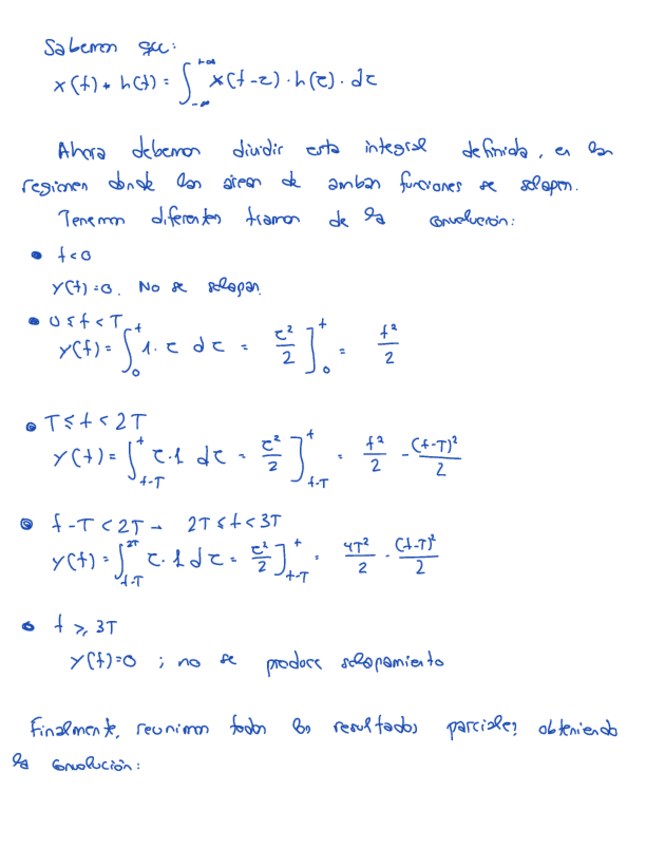 Sabemos que:
x(t) * h(t) = ∫_{-∞}^{+∞} x(t-τ) · h(τ) · dτ
Ahora debemos dividir esta integral definida, en las
regiones donde las áreas de ambas funciones se solapan.
Tenemos diferentes tramos de la convolución:
• t<0
y(t)=0. No se solapan.
• 0 ≤ t < T
y(t) = ∫_0^t 1 · τ dτ = τ²/2 ]_0^t = t²/2
• T ≤ t < 2T
y(t) = ∫_{t-T}^t τ · 1 dτ = τ²/2 ]_{t-T}^t = t²/2 - (t-T)²/2
• t-T < 2T → 2T ≤ t < 3T
y(t) = ∫_{t-T}^{2T} τ · 1 dτ = τ²/2 ]_{t-T}^t = 4T²/2 - (t-T)²/2
• t ≥ 3T
y(t)=0 ; no se produce solapamiento
Finalmente, reunimos todos los resultados parciales obteniendo
la convolución: